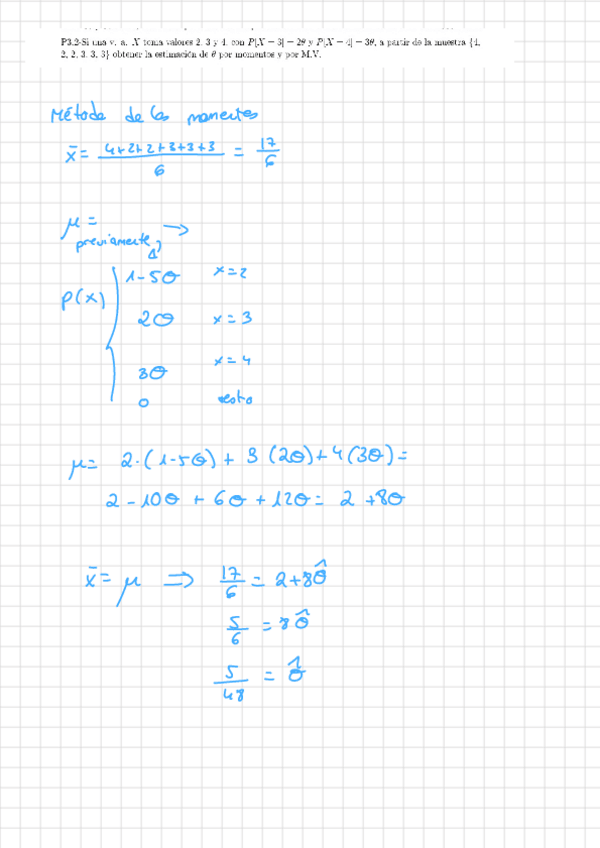 P3.2-Si una v. a. X toma valores 2, 3 y 4, con P[X = 3] = 2θ y P[X = 4] = 3θ, a partir de la muestra {4,
2, 2, 3, 3, 3} obtener la estimación de θ por momentos y por M.V.
Método de los momentos
x̄ = (4+2+2+3+3+3)/6 = 17/6
μ =
previamente, →
P(x) { 1-5θ x=2
2θ x=3
3θ x=4
0 resto
μ = 2·(1-5θ) + 3(2θ) + 4(3θ) =
2 - 10θ + 6θ + 12θ = 2 + 8θ
x̄ = μ ⇒ 17/6 = 2+8θ̂
5/6 = 8θ̂
5/48 = θ̂